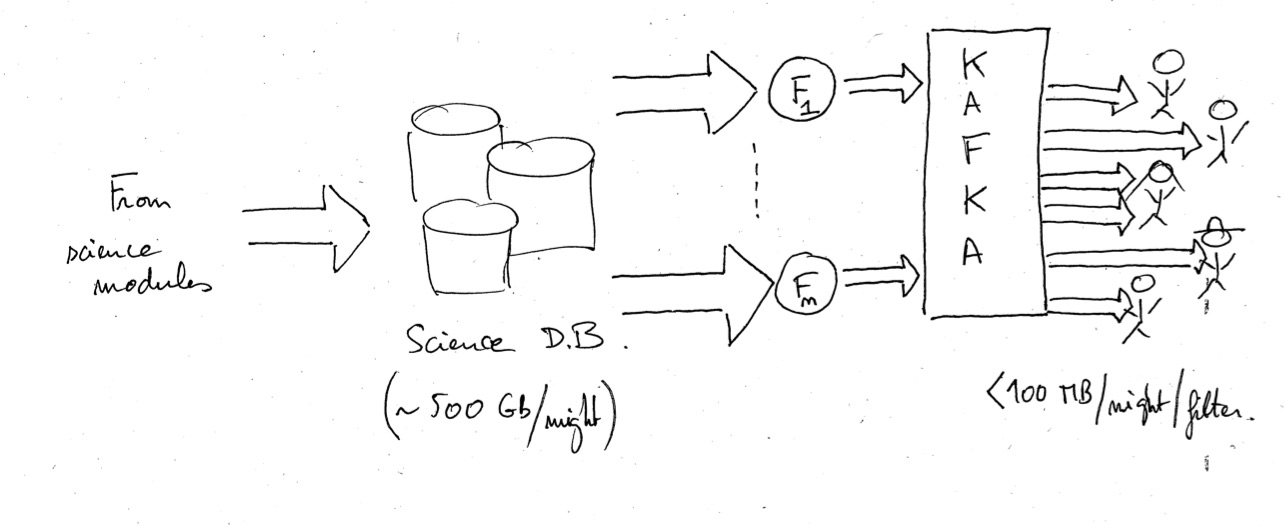 From
science
modules
Science D.B.
(~500 Gb/night)
F1
Fm
K
A
F
K
A
<100 MB/night/filter.